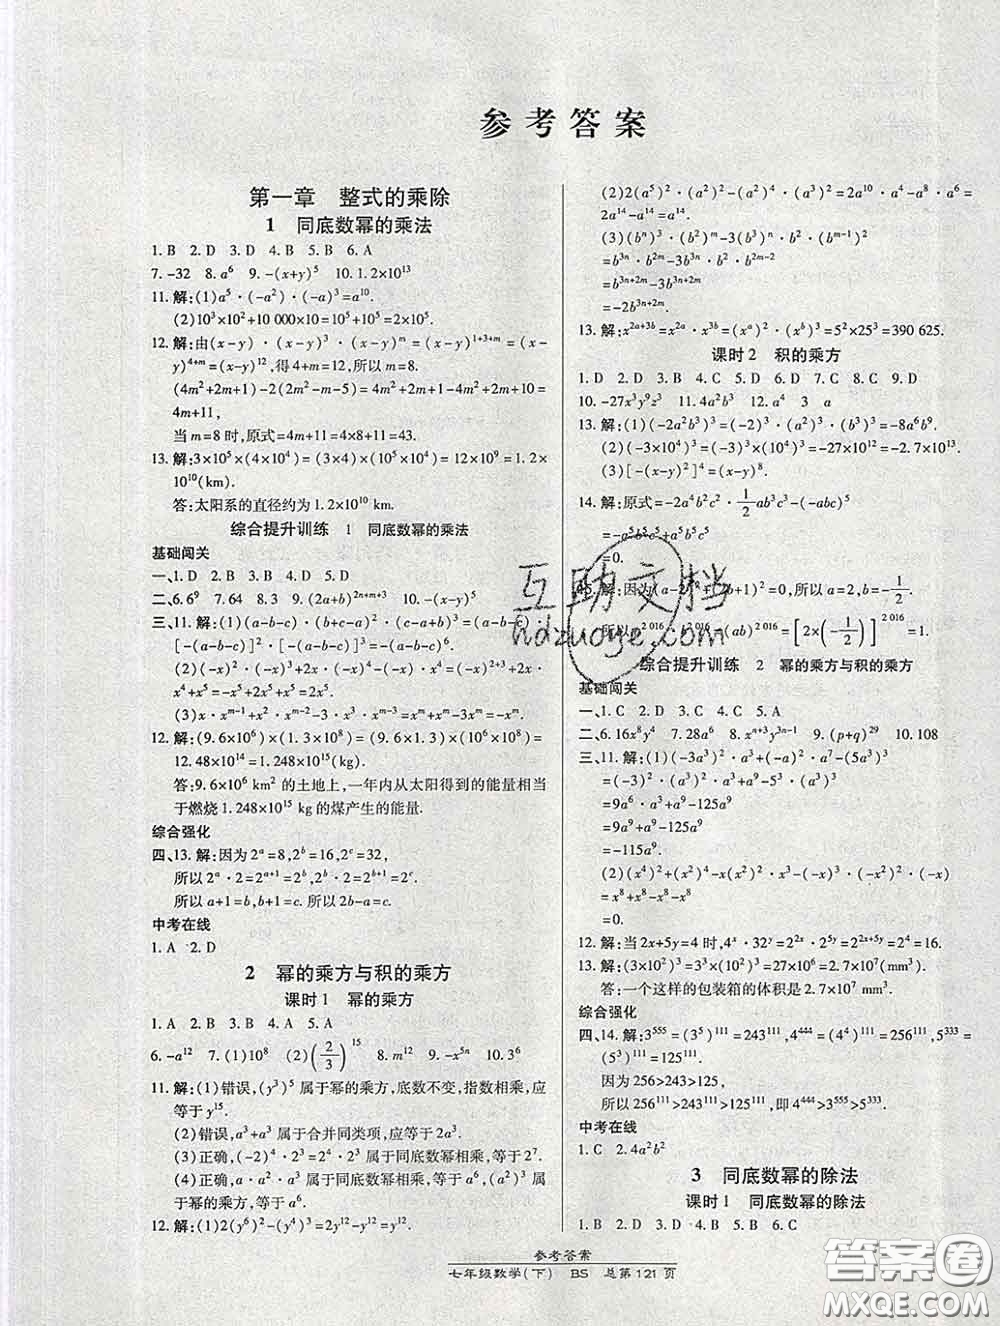 参考答案
第一章 整式的乘除
1 同底数幂的乘法
1.B 2.D 3.D 4.B 5.B 6.A
7.-32 8.a⁶ 9.-(x+y)⁵ 10.1.2×10¹³
11.解:(1)a⁵·(-a²)·(-a)³=a¹⁰.
(2)10³×10²+10 000×10=10⁵+10⁵=2×10⁵.
12.解:由(x-y)·(x-y)³·(x-y)ᵐ=(x-y)¹⁺³⁺ᵐ=(x-
y)⁴⁺ᵐ=(x-y)¹²,得4+m=12,所以m=8.
(4m²+2m+1)-2(2m²-m-5)=4m²+2m+1-4m²+2m+10=
4m+11,
当m=8时,原式=4m+11=4×8+11=43.
13.解:3×10⁵×(4×10⁴)=(3×4)×(10⁵×10⁴)=12×10⁹=1.2×
10¹⁰(km).
答:太阳系的直径约为1.2×10¹⁰ km.
综合提升训练 1 同底数幂的乘法
基础闯关
一、1.D 2.D 3.B 4.D 5.D
二、6.6⁹ 7.64 8.3 9.(2a+b)²ⁿ⁺ᵐ⁺³ 10.-(x-y)⁶
三、11.解:(1)(a-b-c)·(b+c-a)²·(c-a+b)³=(a-b-c)·
[-(a-b-c)]²·[-(a-b-c)]³=-(a-b-c)⁶.
(2)(-x)²·(-x)³+2x·(-x)⁴-(-x)·x⁴=-x⁵+2x⁵+x·
x⁴+x⁵=-x⁵+2x⁵+x⁵=2x⁵.
(3)x·xᵐ⁻¹+x²·xᵐ⁻²-3·x³·xᵐ⁻³=xᵐ+xᵐ-3xᵐ=-xᵐ.
12.解:(9.6×10⁶)×(1.3×10⁸)=(9.6×1.3)×(10⁶×10⁸)=
12.48×10¹⁴=1.248×10¹⁵(kg).
答:9.6×10⁶ km²的土地上,一年内从太阳得到的能量相当
于燃烧1.248×10¹⁵ kg的煤产生的能量.
综合强化
四、13.解:因为2ᵃ=8,2ᵇ=16,2ᶜ=32,
所以2ᵃ·2=2ᵃ⁺¹=2ᵇ,2ᵇ·2=2ᵇ⁺¹=2ᶜ.
所以a+1=b,b+1=c.所以2b-a=c.
中考在线
1.A 2.D
2 幂的乘方与积的乘方
课时1 幂的乘方
1.A 2.A 3.D 4.A 5.A
6.-a¹² 7.(1)10⁸ (2)(2/3)¹⁵ 8.m¹² 9.-x⁵ⁿ 10.3⁶
11.解:(1)错误,(y³)⁵属于幂的乘方,底数不变,指数相乘,应
等于y¹⁵.
(2)错误,a³+a³属于合并同类项,应等于2a³.
(3)正确,(-2)⁴·2³=2⁴·2³属于同底数幂相乘,等于2⁷.
(4)正确,a²·a⁴属于同底数幂相乘,等于a⁶,(a²)³属于
幂的乘方,等于a⁶.
12.解:(1)2(y⁶)²-(y⁴)³=2y¹²-y¹²=y¹².
(2)2(a⁵)²·(a²)²-(a²)⁴·(a³)²=2a¹⁰·a⁴-a⁸·a⁶=
2a¹⁴-a¹⁴=a¹⁴.
(3)(bⁿ)³·(b²)ᵐ-3(b³)ⁿ·b²·(bᵐ⁻¹)²
=b³ⁿ·b²ᵐ-3b³ⁿ·b²·b²ᵐ⁻²
=b³ⁿ⁺²ᵐ-3b³ⁿ⁺²ᵐ
=-2b³ⁿ⁺²ᵐ.
13.解:x²ᵃ⁺³ᵇ=x²ᵃ·x³ᵇ=(xᵃ)²·(xᵇ)³=5²×25³=390 625.
课时2 积的乘方
1.D 2.D 3.D 4.C 5.D 6.D 7.D 8.C 9.D
10.-27x³y⁹z³ 11.4a²b³ 12.a⁴ 3 a
13.解:(1)(-2a²b³)³=(-2)³·(a²)³·(b³)³=-8a⁶b⁹.
(2)(-3×10⁴)³=(-3)³×(10⁴)³=-27×10¹²=-2.7×10¹³.
(3)[-(x-y)²]⁴=(x-y)⁸.
14.解:原式=-2a⁴b²c²·1/2ab³c³-(-abc)⁵
=-a⁵b⁵c⁵+a⁵b⁵c⁵
=0.
解:因为(a-2)²+(2b+1)²=0,所以a=2,b=-1/2.
所以 ²⁰¹⁶ ²⁰¹⁶=(ab)²⁰¹⁶=[2×(-1/2)]²⁰¹⁶=1.
综合提升训练 2 幂的乘方与积的乘方
基础闯关
一、1.C 2.D 3.D 4.C 5.A
二、6.16x⁸y⁴ 7.28a⁶ 8.xⁿ⁺³y³ⁿ⁻¹ 9.(p+q)²⁹ 10.108
三、11.解:(1)(-3a³)²·a³+(-a)²·a⁷-(5a³)³
=(-3)²·(a³)²·a³+a⁹-5³·(a³)³
=9a⁶·a³+a⁹-125a⁹
=9a⁹+a⁹-125a⁹
=-115a⁹.
(2)(x⁴)²+(x²)⁴-x(x²)²·x³-(-x)³·(-x²)²·(-x)
=x⁸+x⁸-x⁸-x⁸
=0.
12.解:当2x+5y=4时,4ˣ·32ʸ=2²ˣ·2⁵ʸ=2²ˣ⁺⁵ʸ=2⁴=16.
13.解:(3×10²)³=3³×(10²)³=27×10⁶=2.7×10⁷(mm³).
答:一个这样的包装箱的体积是2.7×10⁷ mm³.
综合强化
四、14.解:3⁵⁵⁵=(3⁵)¹¹¹=243¹¹¹,4⁴⁴⁴=(4⁴)¹¹¹=256¹¹¹,5³³³=
(5³)¹¹¹=125¹¹¹.
因为256>243>125,
所以256¹¹¹>243¹¹¹>125¹¹¹,即4⁴⁴⁴>3⁵⁵⁵>5³³³.
中考在线
1.C 2.4a²b²
3 同底数幂的除法
课时1 同底数幂的除法
1.B 2.D 3.D 4.B 5.B 6.C
参考答案
七年级数学(下) BS 总第121页
互助文档
hdzuoye.com
答案圈
MXQE.COM